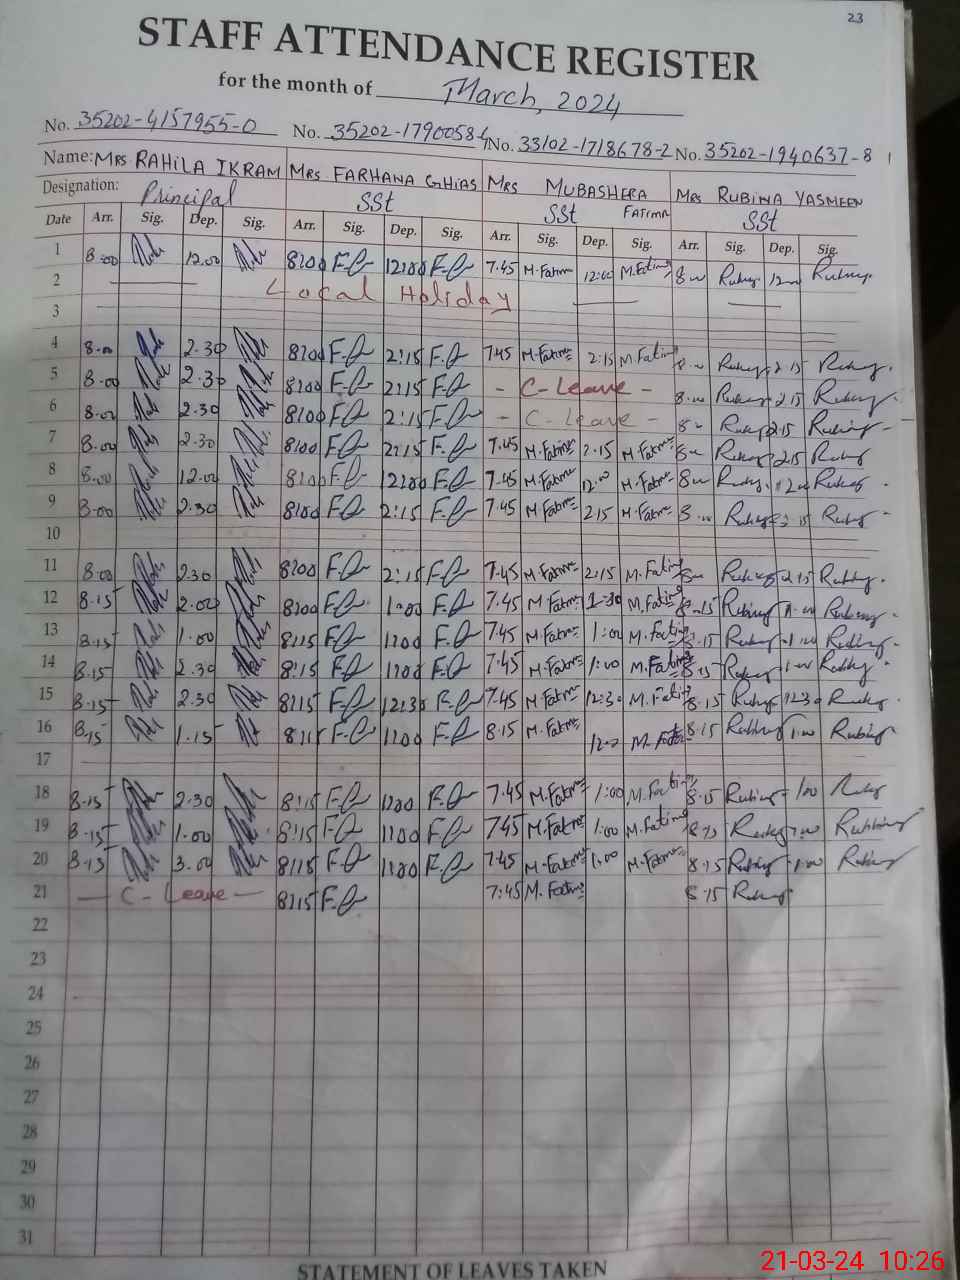 23
STAFF ATTENDANCE REGISTER
for the month of March, 2024
No. 35202-4157955-0 No. 35202-1790058-4 No. 33102-1718678-2 No. 35202-1940637-8
Name: MRS RAHILA IKRAM MRS FARHANA GHIAS MRS MUBASHERA FATIMA MRS RUBINA YASMEEN
Designation: Principal SSt SSt SSt
Date Arr. Sig. Dep. Sig. Arr. Sig. Dep. Sig. Arr. Sig. Dep. Sig. Arr. Sig. Dep. Sig.
1 8.00 12.00 8:00 F.G 12:00 F.G 7.45 M.Fatima 12:00 M.Fatima 8.00 Rubina 12.00 Rubina
2 Local Holiday
3
4 8.00 2.30 8:00 F.G 2:15 F.G 7.45 M.Fatima 2:15 M.Fatima 8.00 Rubina 2.15 Rubina
5 8.00 2.30 8:00 F.G 2:15 F.G - C-Leave - 8.00 Rubina 2.15 Rubina
6 8.00 2.30 8:00 F.G 2:15 F.G - C-Leave - 8.00 Rubina 2.15 Rubina
7 8.00 2.30 8:00 F.G 2:15 F.G 7.45 M.Fatima 2.15 M.Fatima 8.00 Rubina 2.15 Rubina
8 8.00 12.00 8:00 F.G 12:00 F.G 7.45 M.Fatima 12.00 M.Fatima 8.00 Rubina 12.00 Rubina
9 8.00 2.30 8:00 F.G 2:15 F.G 7.45 M.Fatima 2.15 M.Fatima 8.00 Rubina 2.15 Rubina
10
11 8.00 2.30 8:00 F.G 2:15 F.G 7.45 M.Fatima 2:15 M.Fatima 8.00 Rubina 2.15 Rubina
12 8.15 2.00 8:00 F.G 1:00 F.G 7.45 M.Fatima M.Fatima 8.15 Rubina 1.00 Rubina
13 8.15 1.00 8:15 F.G 1:00 F.G 7.45 M.Fatima 1:00 M.Fatima 8.15 Rubina 1.00 Rubina
14 8.15 2.30 8:15 F.G 1:00 F.G 7.45 M.Fatima 1:00 M.Fatima 8.15 Rubina 1.00 Rubina
15 8.15 2.30 8:15 F.G 12:30 F.G 7.45 M.Fatima 12:30 M.Fatima 8.15 Rubina 12:30 Rubina
16 8.15 1.15 8:15 F.G 1:00 F.G 8.15 M.Fatima M.Fatima 8.15 Rubina 1.00 Rubina
17
18 8.15 2.30 8:15 F.G 1:00 F.G 7.45 M.Fatima 1:00 M.Fatima 8.15 Rubina 1.00 Rubina
19 8.15 1.00 8:15 F.G 1:00 F.G 7.45 M.Fatima 1:00 M.Fatima 8.15 Rubina 1.00 Rubina
20 8.15 3.00 8:15 F.G 1:00 F.G 7.45 M.Fatima 1.00 M.Fatima 8.15 Rubina 1.00 Rubina
21 - C-Leave - 8:15 F.G 7:45 M.Fatima 8.15 Rubina
22
23
24
25
26
27
28
29
30
31
STATEMENT OF LEAVES TAKEN
21-03-24 10:26